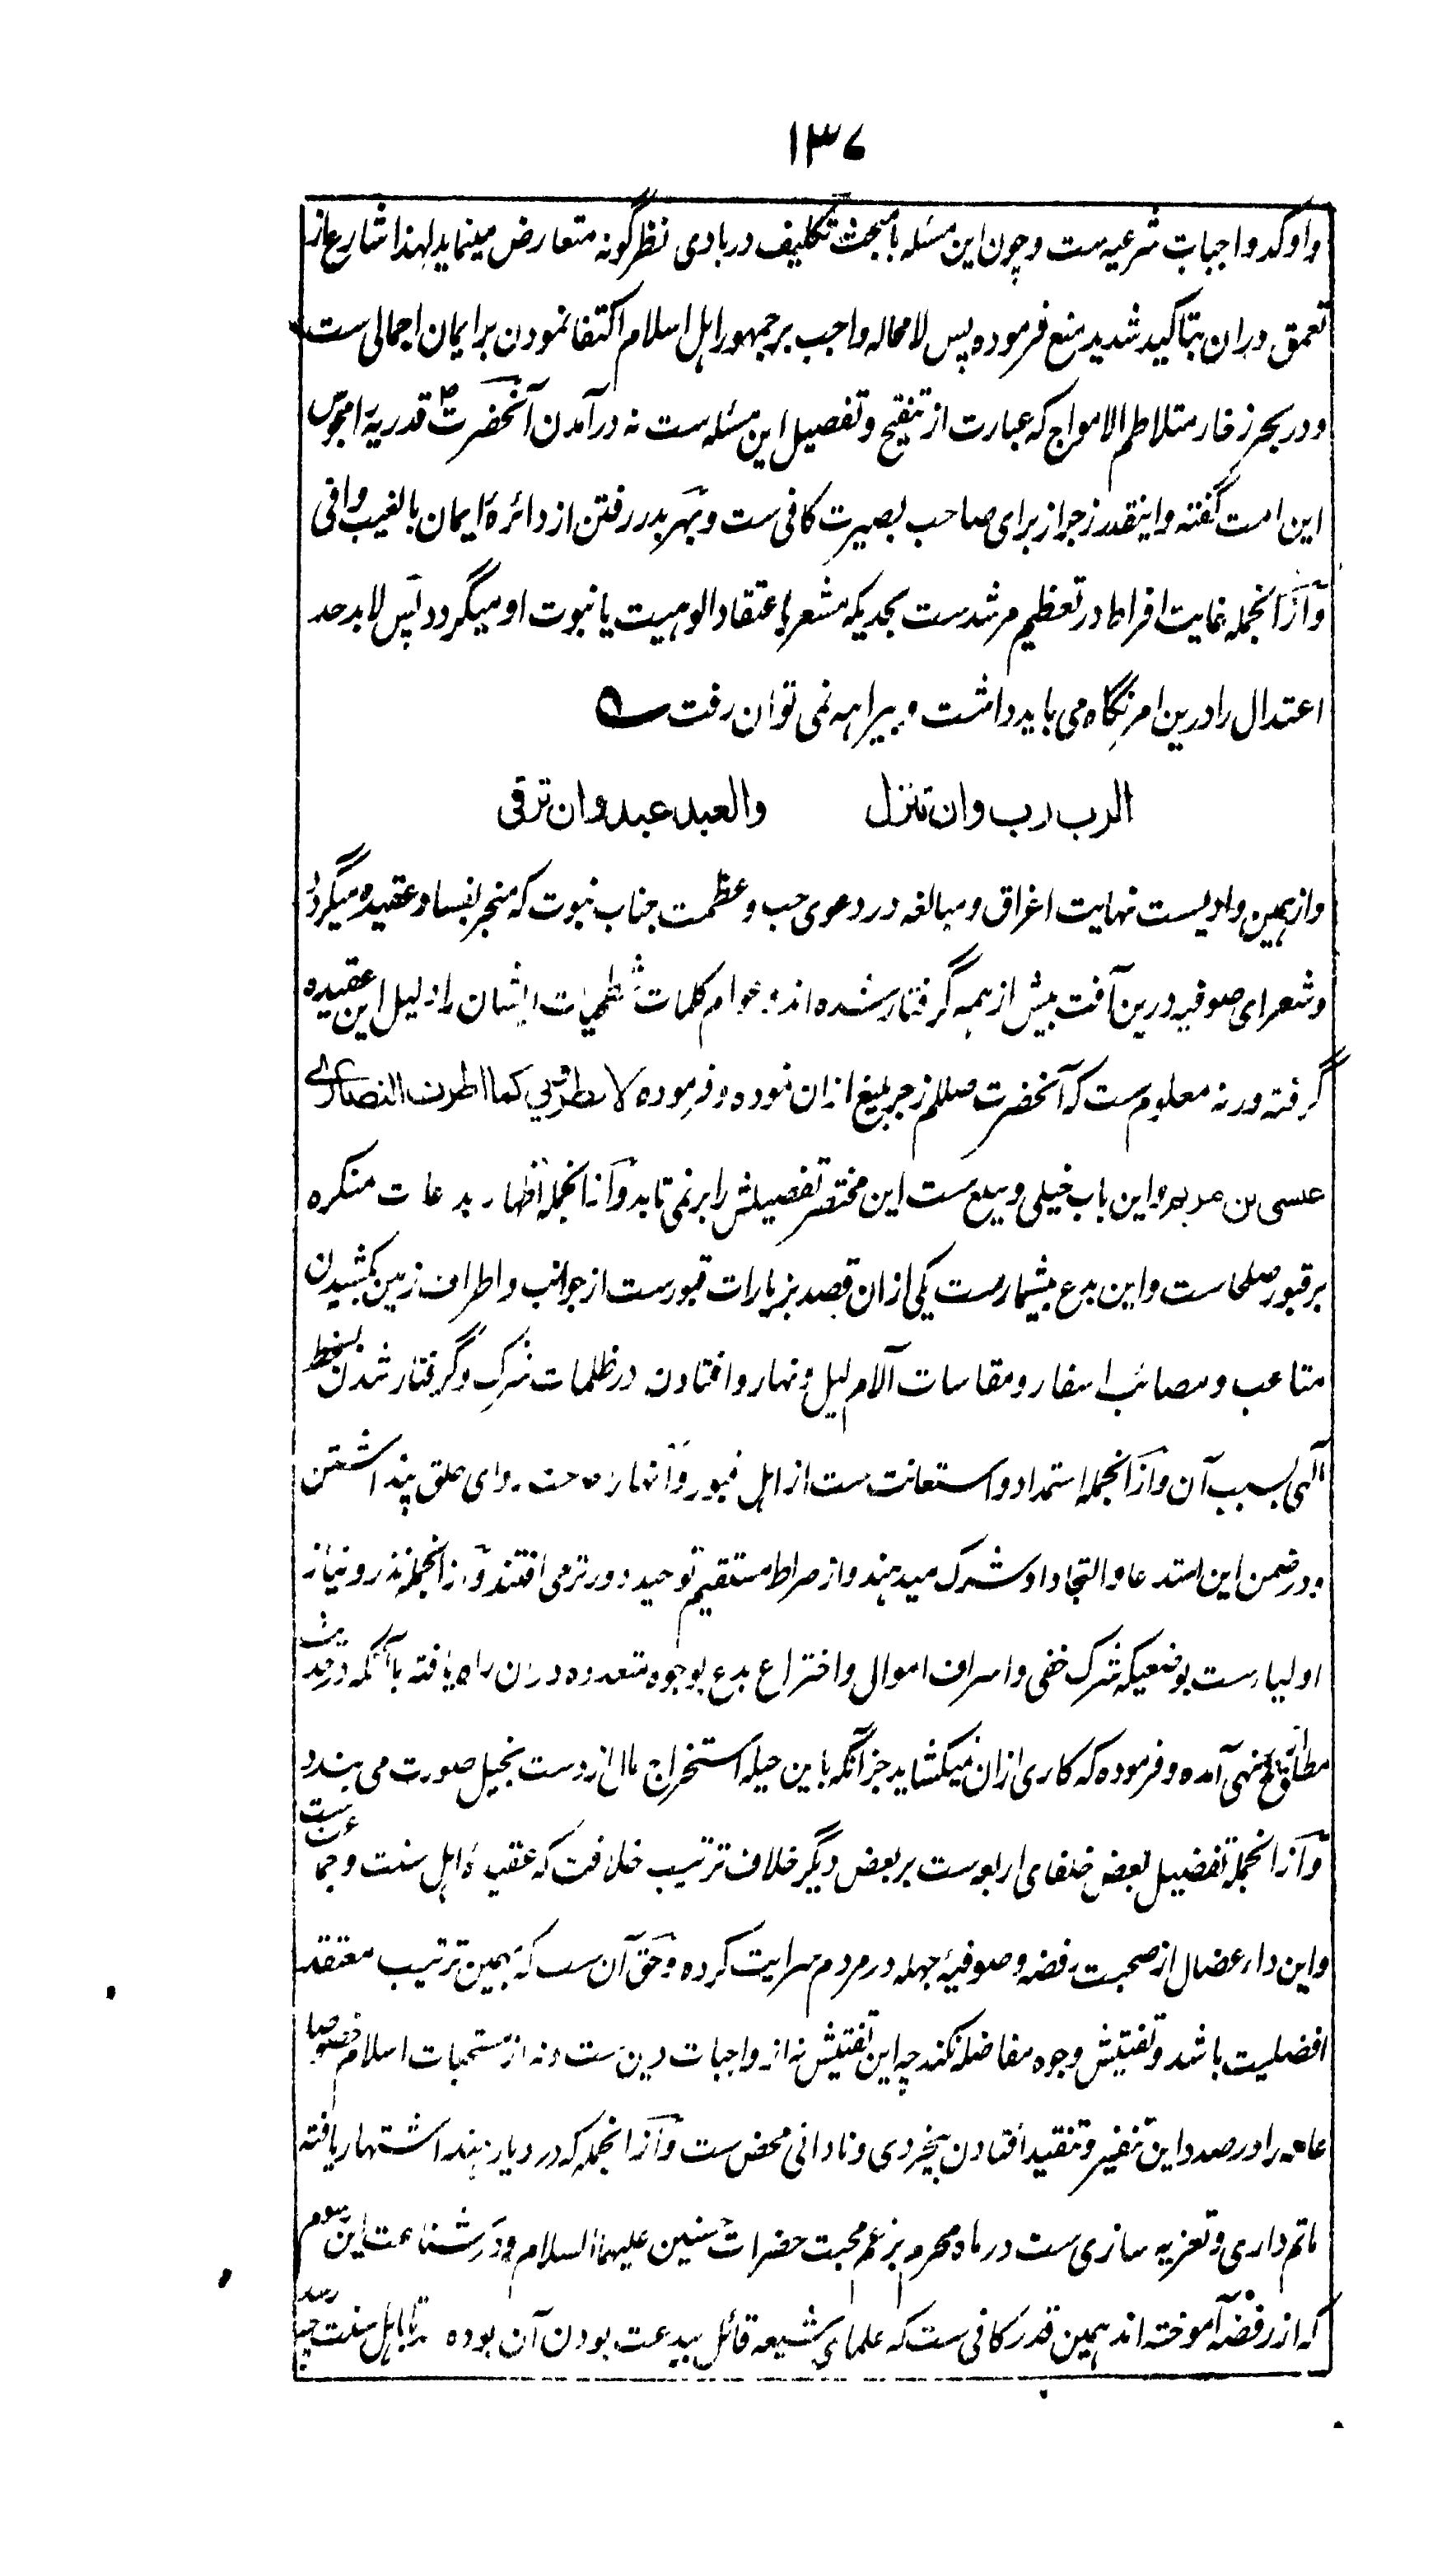 ۱۳۷
و اوکد واجبات شرعیه ست و چون این مسئله با مبحث تکلیف در بادی نظر گونه متعارض مینماید لهذا شارع از
تعمق دران بتاکید شدید منع فرموده پس لامحاله واجب بر جمهور اہل اسلام اکتفا نمودن بر ایمان اجمالی ست
و در بحر زخار متلاطم الامواج که عبارت از تنقیح و تفصیل این مسئله ست نه درآمدن آنحضرت ؐ قدریه را مجوس
این امت گفته و اینقدر زجر از برای صاحب بصیرت کافی ست و بهر بدر رفتن از دائرهٔ ایمان بالغیب وافی
و ازانجمله غایت افراط در تعظیم مرشد ست بحدیکه مشعر باعتقاد الوہیت یا نبوت او میگردد پس لابد حد
اعتدال را درین امر نگاه می باید داشت و بیراہه نمی توان رفت ؎
الرب رب وان تنزل والعبد عبد وان ترقی
و از ہمین وادیست نہایت اغراق و مبالغه در دعوی حب و عظمت جناب نبوت که منجر بفساد عقیده میگردد
و شعرای صوفیه درین آفت بیش از ہمه گرفتار شده اند و عوام کلمات شطحیات ایشان را دلیل این عقیده
گرفته ورنه معلوم ست که آنحضرت صللم زجر بلیغ ازان نموده و فرموده لا تطرونی کما اطرت النصاری
عیسی بن مریم و این باب خیلی وسیع ست این مختصر تفصیلش را برنمی تابد و ازانجمله اظہار بدعات منکره
بر قبور صلحاست و این بدع بیشمار ست یکی ازان قصد بزیارات قبور ست از جوانب و اطراف زمین کشیدن
متاعب و مصائب اسفار و مقاسات آلام لیل و نہار و افتادن در ظلمات شرک و گرفتار شدن بسخط
الٰہی بسبب آن و ازانجمله استمداد و استعانت ست از اہل قبور و آنہا را حاجت روای خلق پنداشتن
و در ضمن این استدعا و التجا داد شرک میدہند و از صراط مستقیم توحید دورتر می افتند و ازانجمله نذر و نیاز
اولیا ست بوضعیکه شرک خفی و اسراف اموال و اختراع بدع بوجوه متعدده دران راه یافته با آنکه در حدیث
مطلق نذر نہی آمده و فرموده که کاری ازان نمیکشاید جز آنکه باین حیله استخراج مال از دست بخیل صورت می بندد
و ازانجمله تفضیل بعض خلفای اربعه ست بر بعض دیگر خلاف ترتیب خلافت که عقیدهٔ اہل سنت و جماعت ست
و این داء عضال از صحبت رفضه و صوفیهٔ جہله در مردم سرایت کرده و حق آن ست که بہمین ترتیب معتقد
افضلیت باشد و تفتیش وجوه مفاضله نکند چه این تفتیش نه از واجبات دین ست و نه از مستحبات اسلام خصوصا
عامه را در صدد این تنقیر و تنقید افتادن بیخردی و نادانی محض ست و ازانجمله که در دیار ہند اشتہار یافته
ماتم داری و تعزیه سازی ست در ماه محرم بزعم محبت حضرات حسنین علیہما السلام و در شناعت این رسوم
که از رفضه آموخته اند ہمین قدر کافی ست که علمای شیعه قائل ببدعت بودن آن بوده اند تا باہل سنت چه رسد